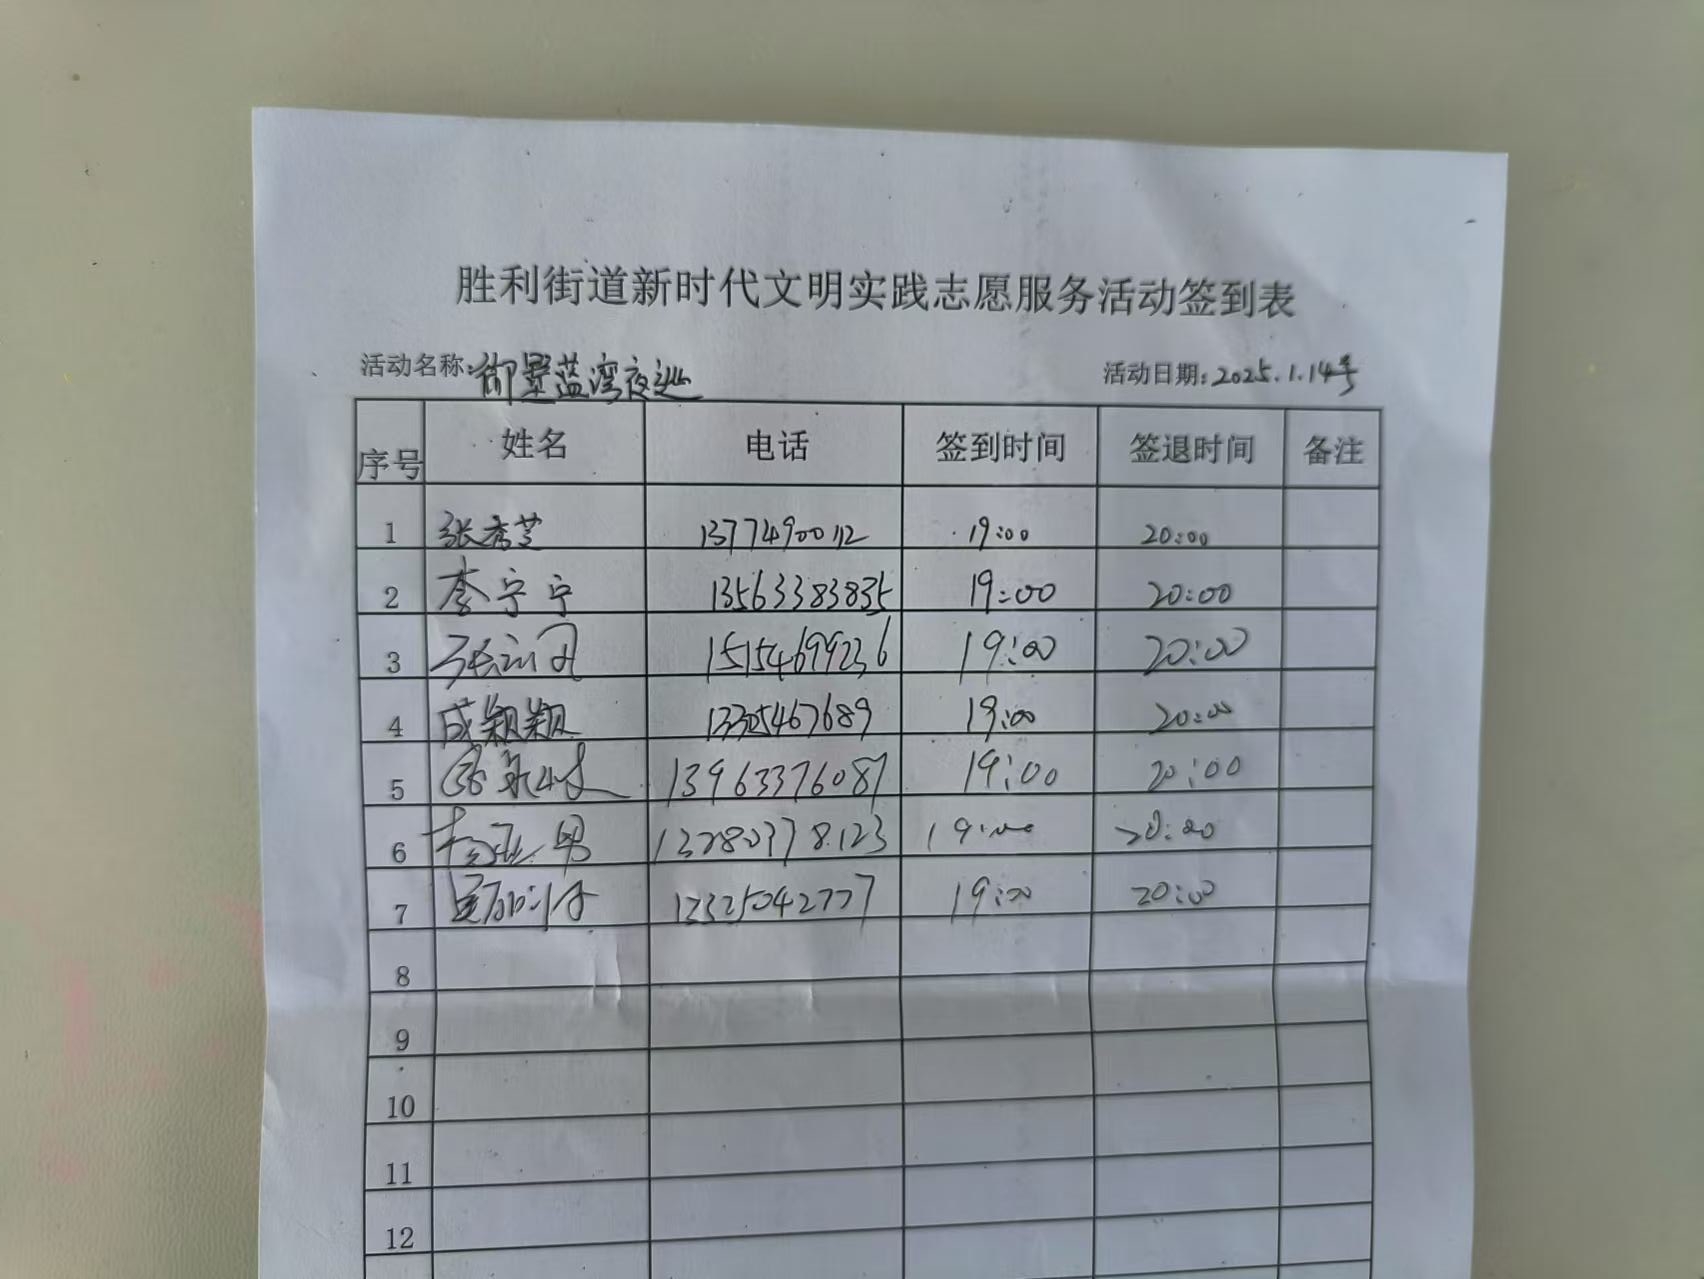 胜利街道新时代文明实践志愿服务活动签到表
活动名称:御墅蓝湾夜巡 活动日期:2025.1.14号
序号 姓名 电话 签到时间 签退时间 备注
1 张秀芝 13774900112 19:00 20:00
2 李宁宁 13563383835 19:00 20:00
3 15154699236 19:00 20:00
4 成颖颖 13305467689 19:00 20:00
5 13963376087 19:00 20:00
6 男 13780378123 19:00 20:00
7 13325042777 19:00 20:00
8
9
10
11
12